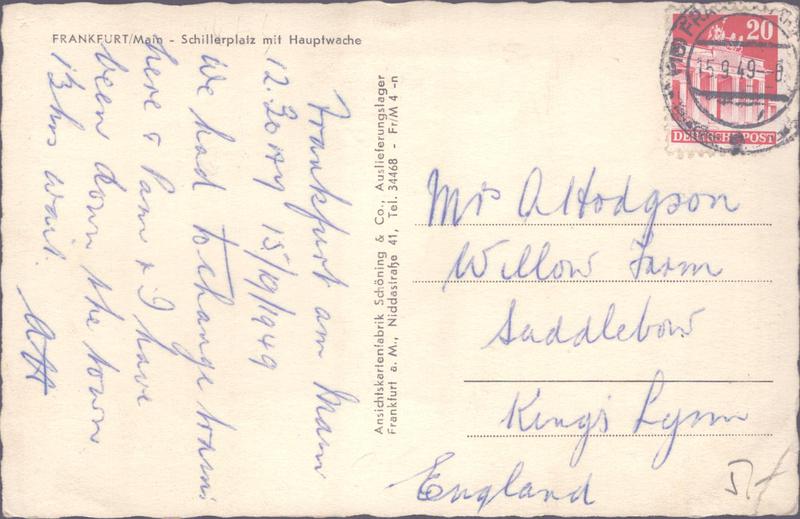 FRANKFURT/Main - Schillerplatz mit Hauptwache
Frankfurt am Main
12.20 AM 15/9/1949
We had to change trains
here & Pam & I have
been down the town
1½ hrs wait.
AH
Ansichtskartenfabrik Schöning & Co., Auslieferungslager
Frankfurt a. M., Niddastraße 41, Tel. 34468 - Fr/M 4 -n
20
DEUTSCHE POST
15.9.49-8
Mrs A Hodgson
Willow Farm
Saddlebow
King's Lynn
England